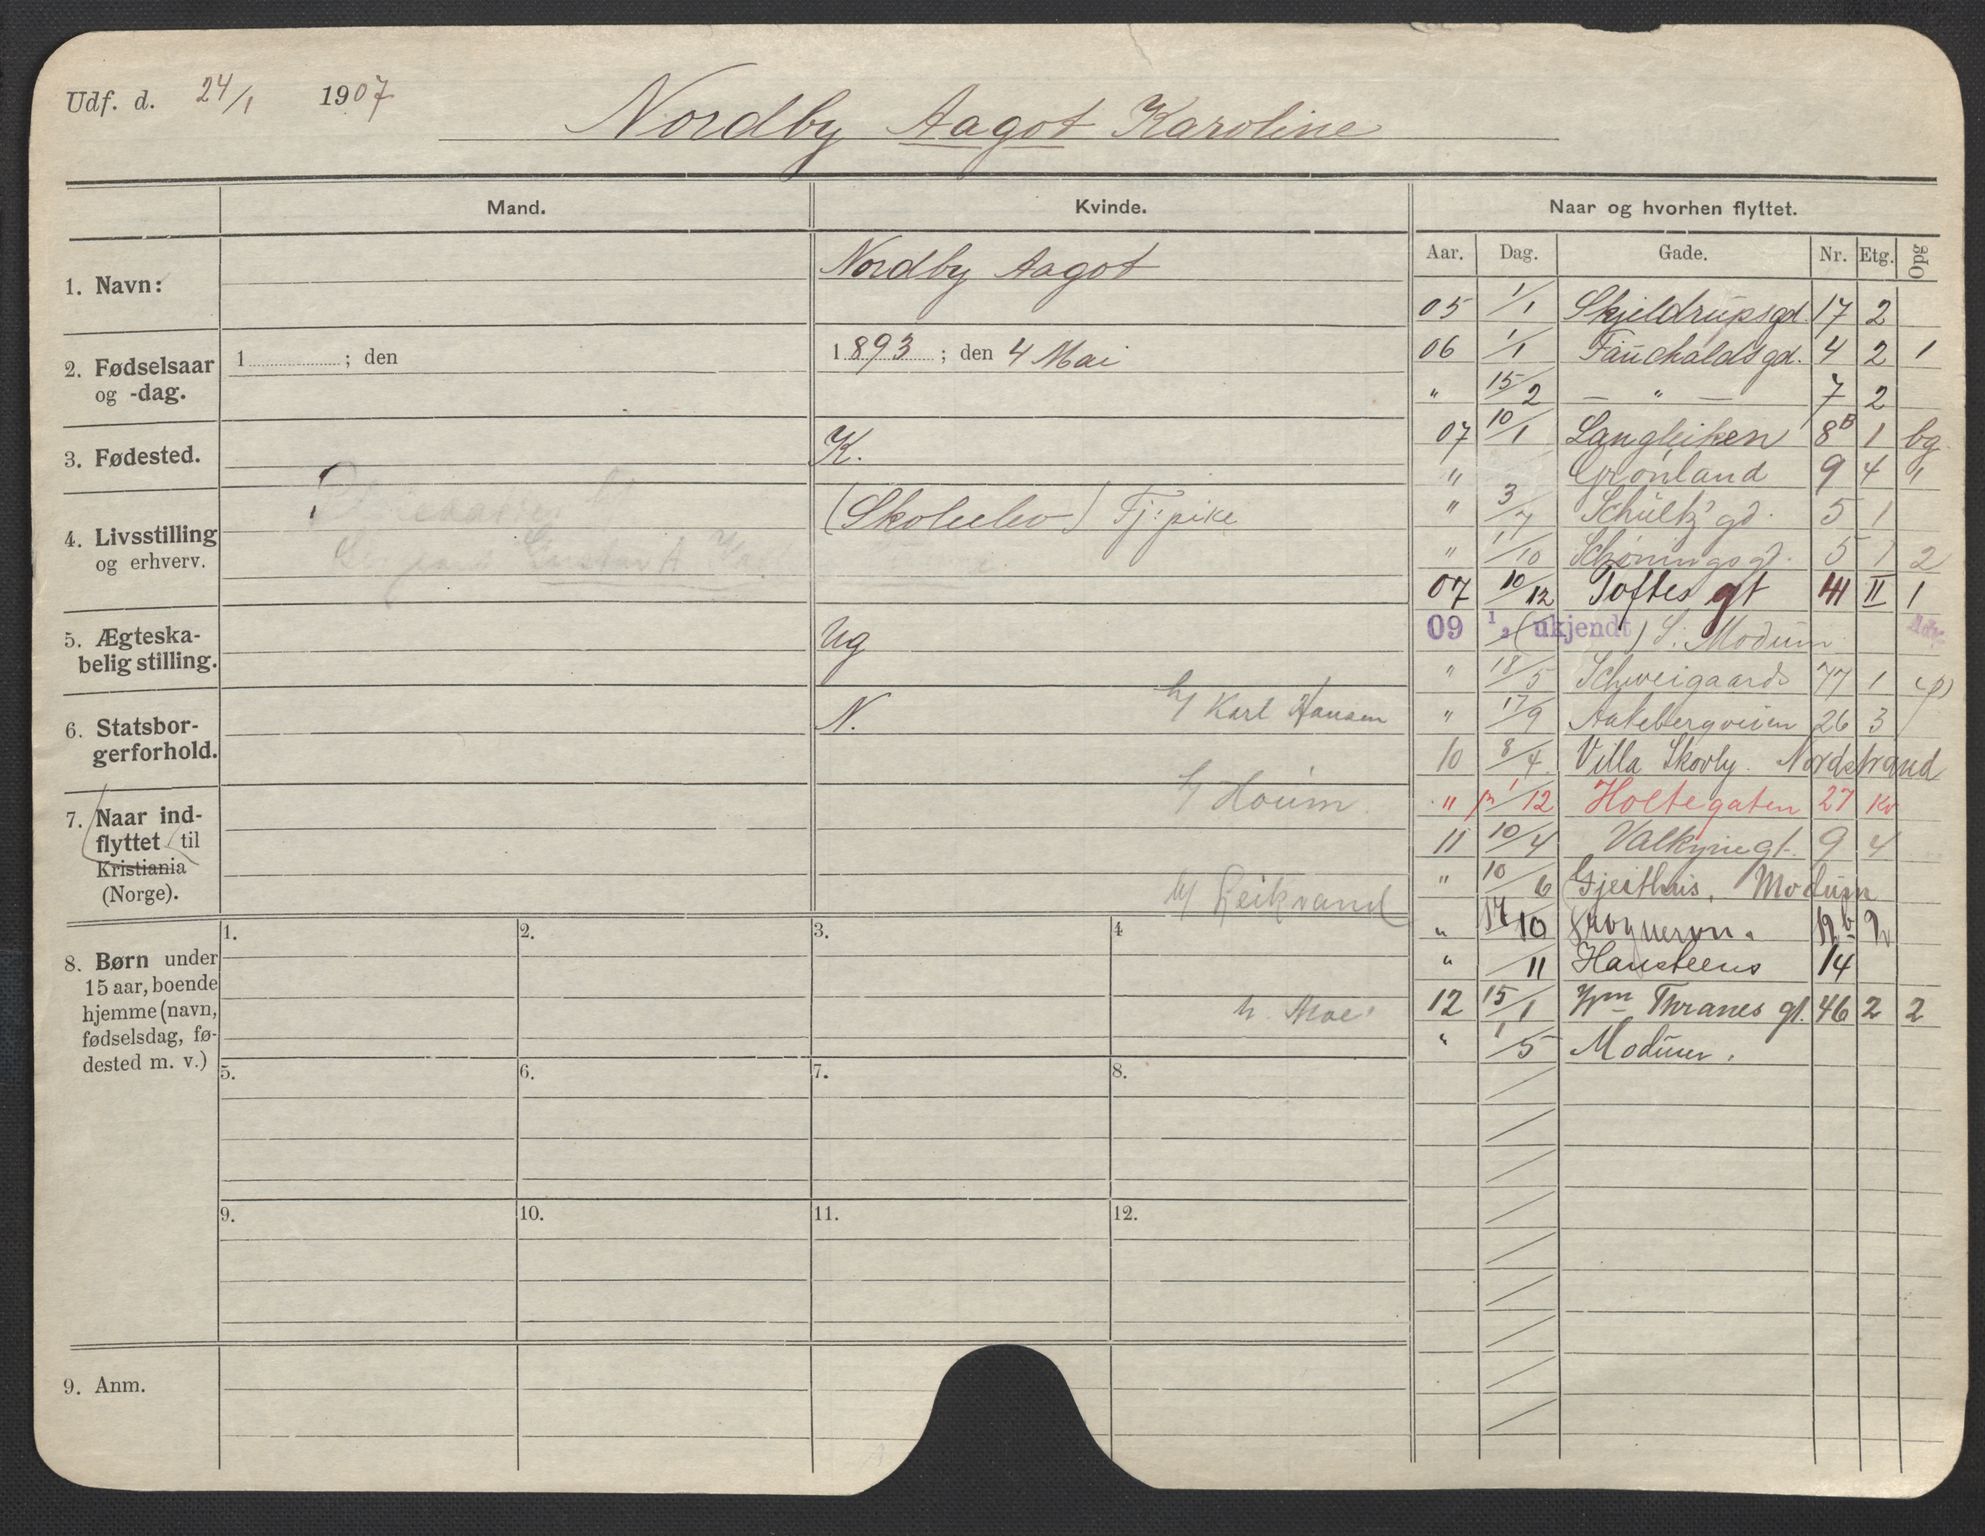 Udf. d. 24/1 1907
Nordby Aagot Karoline
Mand. Kvinde. Naar og hvorhen flyttet.
Aar. Dag. Gade. Nr. Etg. Opg
1. Navn:
Nordby Aagot
2. Fødselsaar og -dag.
1 ; den
1893 ; den 4 Mai
3. Fødested.
K.
4. Livsstilling og erhverv.
(Skoleelev) Tj: pike
5. Ægteska-
belig stilling.
Ug
6. Statsbor-
gerforhold.
N.
h/ Karl Hansen
7. Naar ind-
flyttet til
Kristiania
(Norge).
h/ Houm
h/ Leikvand
8. Børn under
15 aar, boende
hjemme (navn,
fødselsdag, fø-
dested m. v.)
1. 2. 3. 4
h. Moe
5. 6. 7. 8.
9. 10. 11. 12.
9. Anm.
05 1/1 Skjeldrupsgd. 17 2
06 1/1 Fauchaldsgd. 4 2 1
" 15/2 — " — 7 2
07 10/1 Langleiken 8B 1 bg
" Grønland 9 4 "
" 3/7 Schultz' gd. 5 1
" 11/10 Schøningsgd. 5 1 2
07 10/12 Toftes gt 41 II 1
09 1/2 (ukjendt) S. Modum Adr.
" 18/5 Schweigaards 77 1
" 17/9 Aakebergveien 26 3
10 8/4 Villa Skovly. Nordstrand
" 1/12 Holtegaten 27 Kv
11 10/4 Valkyriegt. 9 4
" 10/6 Gjeithus, Modum
" 17/10 Frognervn. 12b 2
" /11 Hansteens 14
12 15/1 Wm Thranes gt. 46 2 2
" 1/5 Modum.